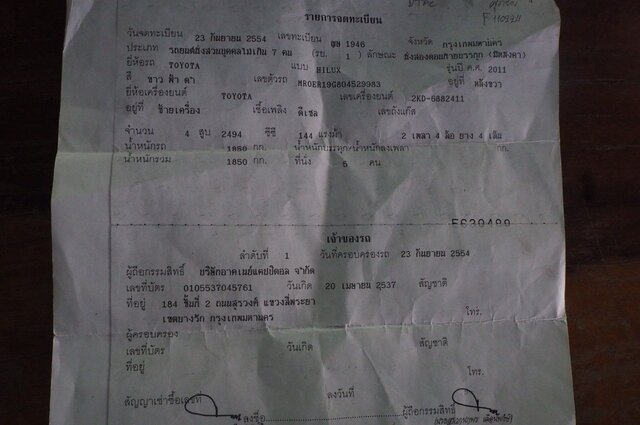 รายการจดทะเบียน
F
วันจดทะเบียน 23 กันยายน 2554 เลขทะเบียน 1946 จังหวัด กรุงเทพมหานคร
ประเภท รถยนต์นั่งส่วนบุคคลไม่เกิน 7 คน (รย. 1 ) ลักษณะ นั่งสองตอนท้ายบรรทุก (มีหลังคา)
ยี่ห้อรถ TOYOTA แบบ HILUX รุ่นปี ค.ศ. 2011
สี ขาว ฟ้า ดำ เลขตัวรถ MR0ER19G804529983 อยู่ที่ หลังขวา
ยี่ห้อเครื่องยนต์ TOYOTA เลขเครื่องยนต์ 2KD-6882411
อยู่ที่ ซ้ายเครื่อง เชื้อเพลิง ดีเซล เลขถังแก๊ส
จำนวน 4 สูบ 2494 ซีซี 144 แรงม้า 2 เพลา 4 ล้อ ยาง 4 เส้น
น้ำหนักรถ 1850 กก. น้ำหนักบรรทุก/น้ำหนักลงเพลา กก.
น้ำหนักรวม 1850 กก. ที่นั่ง 5 คน
เจ้าของรถ
ลำดับที่ 1 วันที่ครอบครองรถ 23 กันยายน 2554
ผู้ถือกรรมสิทธิ์ บริษัทอาคเนย์แคปปิตอล จำกัด
เลขที่บัตร 0105537045761 วันเกิด 20 เมษายน 2537 สัญชาติ
ที่อยู่ 184 ชั้นที่ 2 ถนนสุรวงศ์ แขวงสี่พระยา โทร.
เขตบางรัก กรุงเทพมหานคร
ผู้ครอบครอง
เลขที่บัตร วันเกิด สัญชาติ
ที่อยู่ โทร.
สัญญาเช่าซื้อเลขที่ ลงวันที่
ลงชื่อ ผู้ถือกรรมสิทธิ์